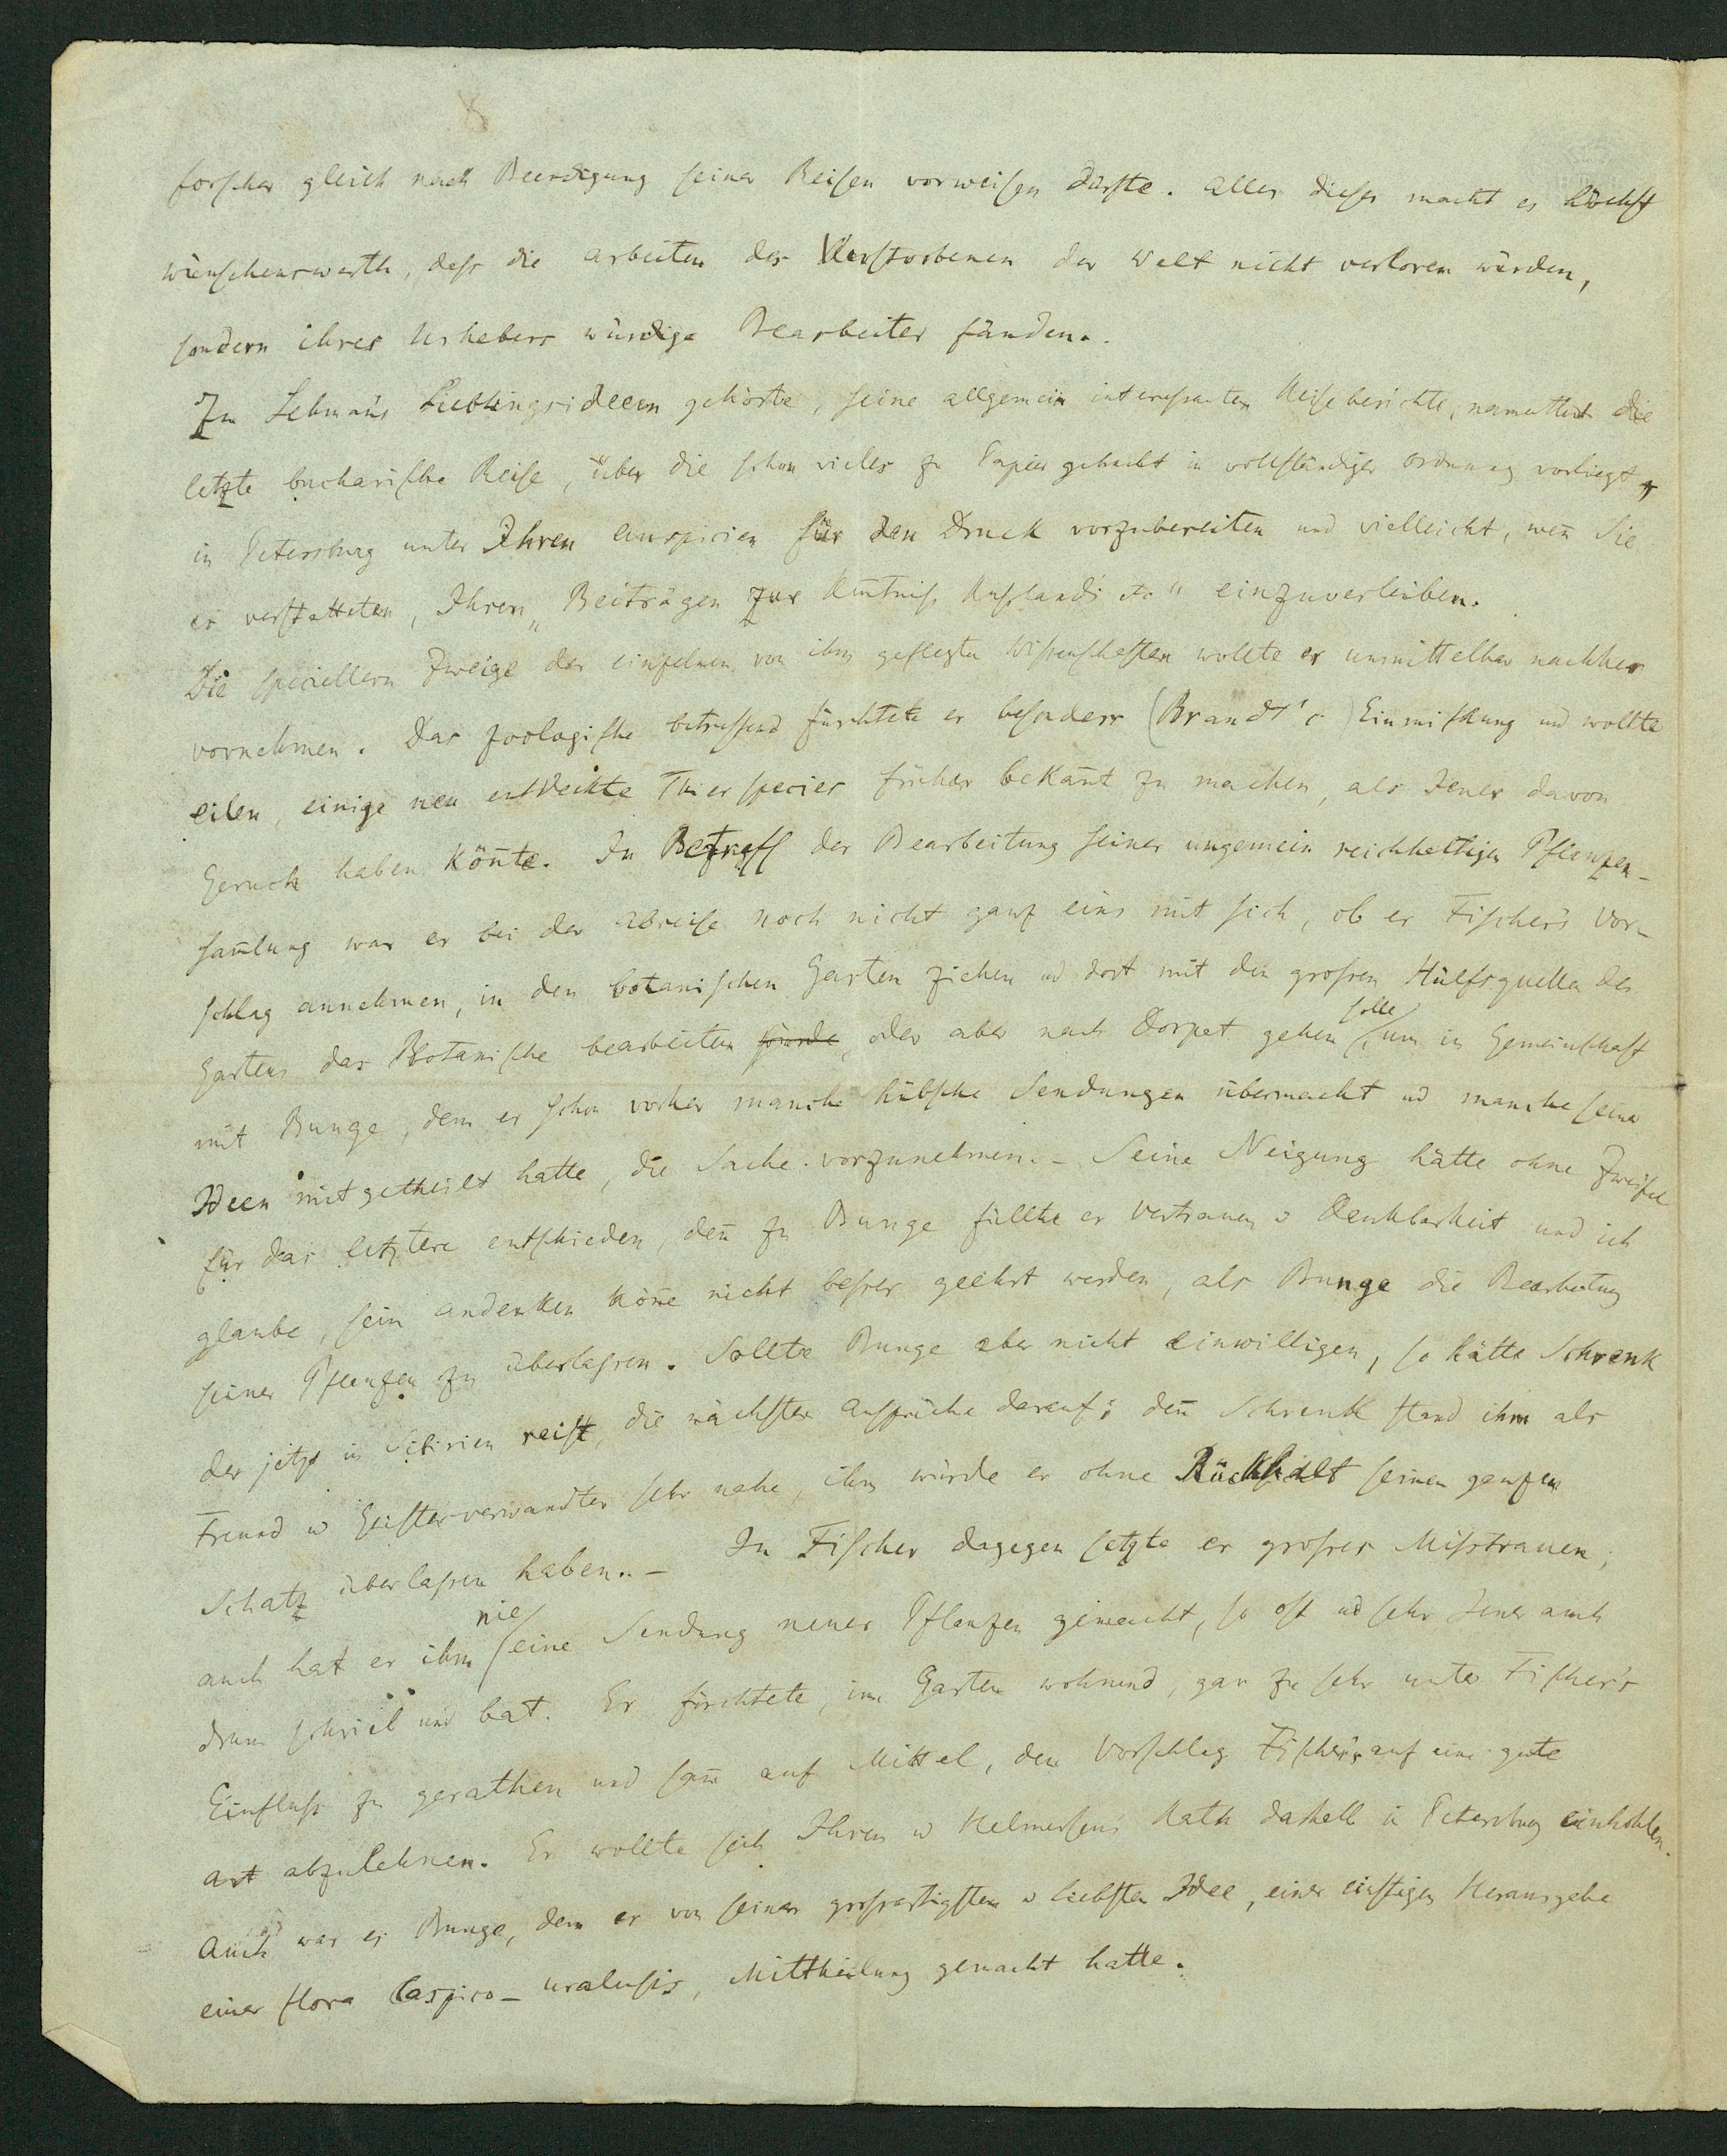 forscher gleich nach Beendigung seiner Reisen vorweisen dürfte. Alles dieses macht es höchst
wünschenswerth, dass die Arbeiten des Verstorbenen der Welt nicht verloren würden,
sondern ihres Urhebers würdige Bearbeiter fänden.
Zu Lehman̄s Lieblingsideeen gehörte, seine allgemein interessanten Reiseberichte, namentlich die
letzte bucharische Reise, über die schon vieles zu Papier gebracht in vollständiger Ordnung vorliegt,
in Petersburg unter Ihren Auspicien für den Druck vorzubereiten und vielleicht, wen̄ Sie
es verstatteten, Ihren „Beiträgen zur Ken̄tniss Russlands etc" einzuverleiben.
Die speciellern Zweige der einzelnen von ihm gepflegten Wissenschaften wollte er unmittelbar nachher
vornehmen. Das zoologische betreffend fürchtete er besonders (Brandt's) Einmischung und wollte
eilen, einige neu entdeckte Thierspecies früher bekan̄t zu machen, als Jener davon
Geruch haben kön̄te. In Betreff der Bearbeitung seiner ungemein reichhaltigen Pflanzen-
sam̄lung war er bei der Abreise noch nicht ganz eins mit sich, ob er Fischer's Vor-
schlag annehmen, in den botanischen Garten ziehen ud dort mit den grossen Hülfsquellen des
Gartens das Botanische bearbeiten, oder aber nach Dorpat gehen solle, um in Gemeinschaft
mit Bunge, dem er schon vorher manche hübsche Sendungen übermacht ud manche seiner
Ideen mitgetheilt hatte, die Sache vorzunehmen. – Seine Neigung hätte ohne Zweifel
für das letztere entschieden, den̄ zu Bunge fühlte er Vertrauen u Dankbarkeit und ich
glaube, sein Andenken kön̄e nicht besser geehrt werden, als Bunge die Bearbeitung
seiner Pflanzen zu überlassen. Sollte Bunge aber nicht einwilligen, so hätte Schrenk
der jetzt in Sibirien reist, die nächsten Ansprüche darauf; den̄ Schrenk stand ihm als
Freund u Geistesverwandter sehr nahe, ihm würde er ohne Rückhalt seinen ganzen
Schatz überlassen haben. – In Fischer dagegen setzte er grosses Misstrauen;
auch hat er ihm nie eine Sendung neuer Pflanzen gemacht, so oft ud sehr Jener auch
drum schrieb und bat. Er fürchtete, im Garten wohnend, gar zu sehr unter Fischer's
Einfluss zu gerathen und san̄ auf Mittel, den Vorschlag Fischer's auf eine gute
Art abzulehnen. Er wollte sich Ihren u Helmersens Rath deshalb in Petersburg einhohlen.
Auch war es Bunge, dem er von seiner grossartigsten u liebsten Idee, einer einstigen Herausgabe
einer flora Caspico-uralensis, Mittheilung gemacht hatte.